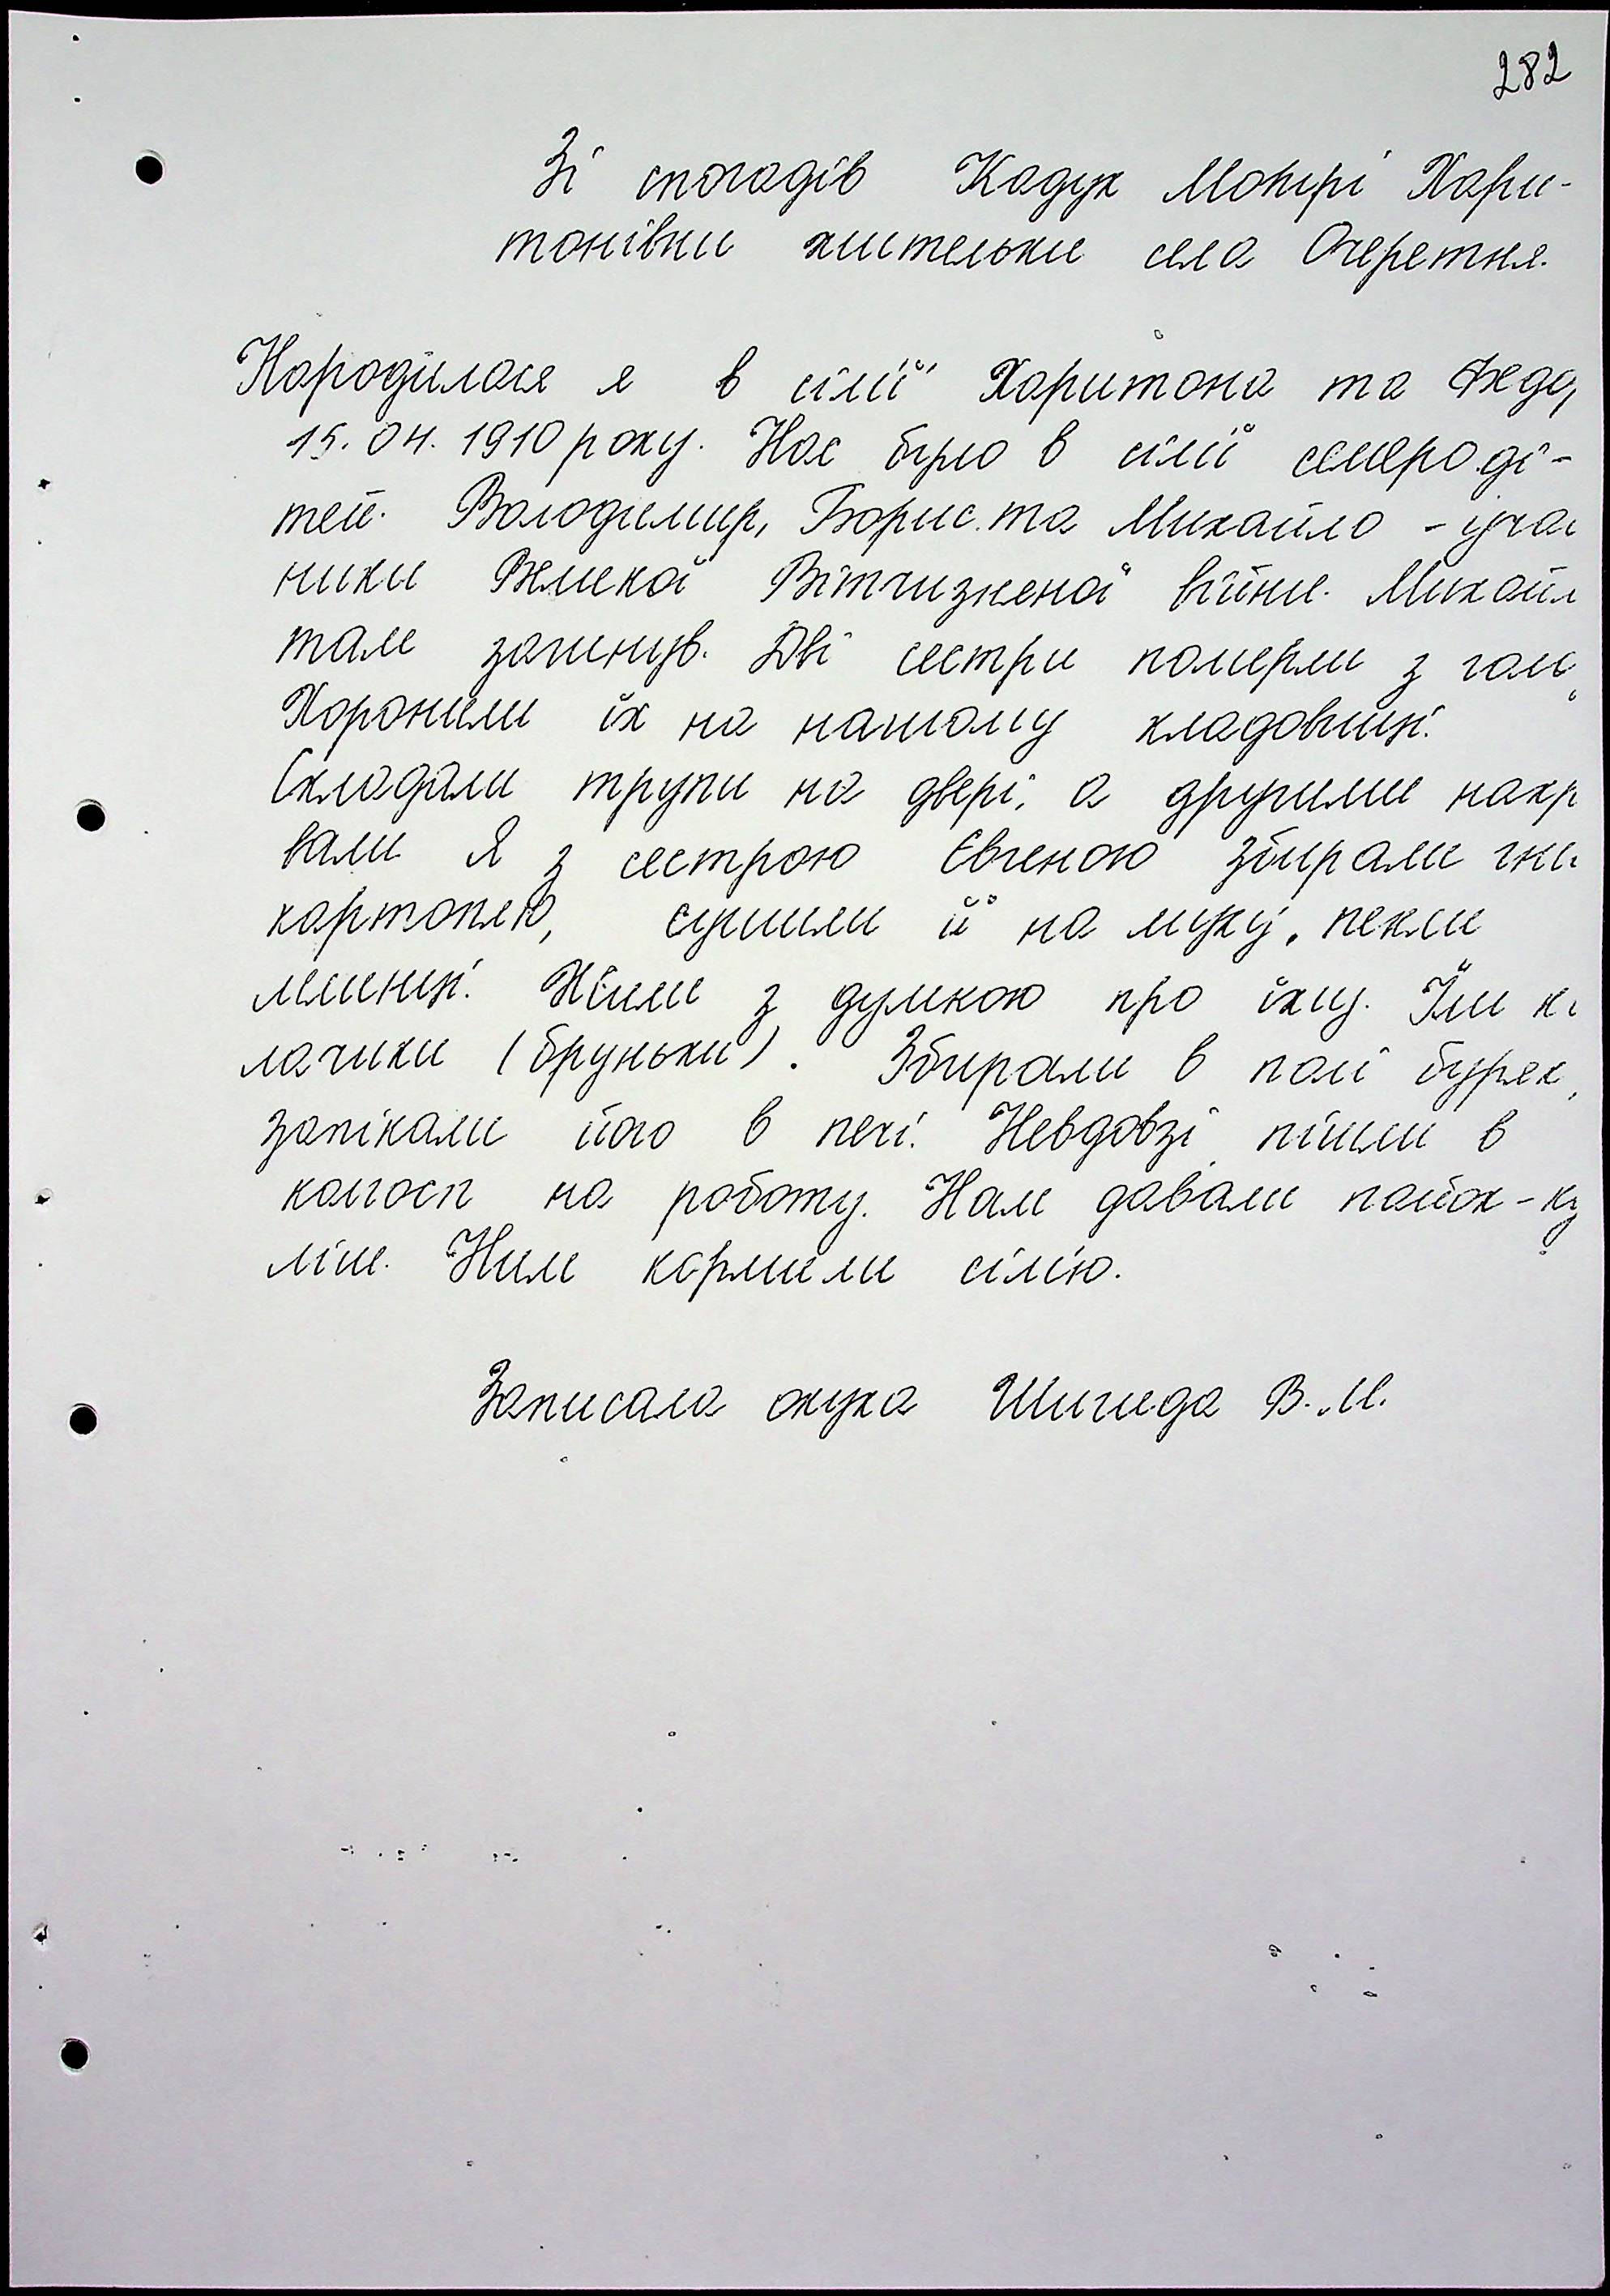 282
Зі спогадів Кадук Мотрі Хари-
тонівни жительки села Очеретня.
Народилася я в сім'ї Харитона та Федо
15.04.1910 року. Нас було в сім'ї семеро ді-
тей. Володимир, Борис та Михайло - учас
ники Великої Вітчизняної війни. Михайл
там загинув. Дві сестри померли з голо
Хоронили їх на нашому кладовищі.
Складали трупи на двері, а другими накр
вали Я з сестрою Євгеною збирали гни
картоплю, сушили її на муку, пекли
млинці. Жили з думкою про їжу. Їли ка
лачики (бруньки). Збирали в полі буряк,
запікали його в печі. Невдовзі пішли в
колгосп на роботу. Нам давали пайок - ку
ліш. Ним кормили сім'ю.
Записала онука Шигида В.М.